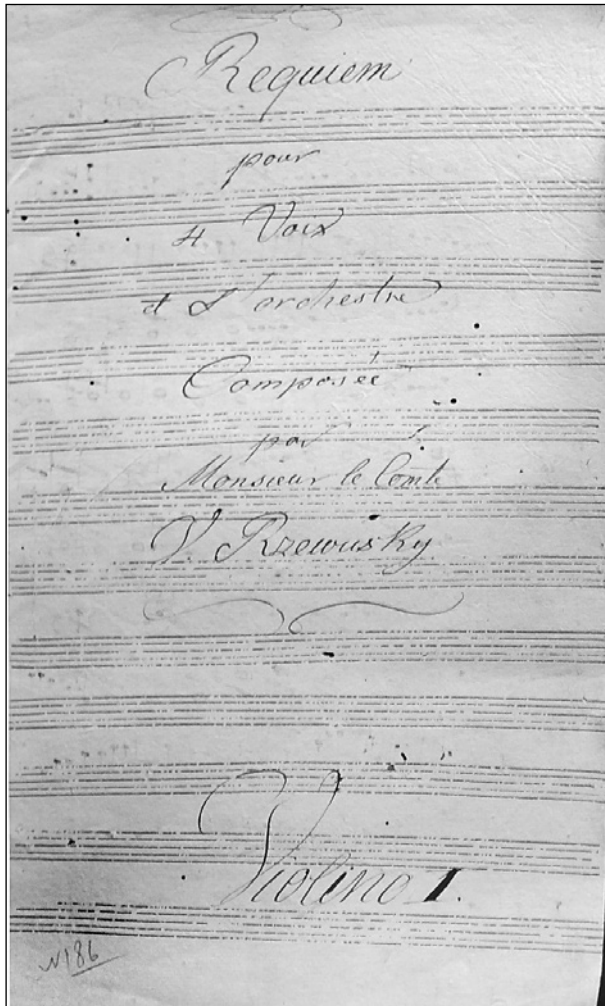 Requiem
pour
4 Voix
et L'orchestre
Composée
par
Monsieur le Comte
V. Rzewusky.
Violino I.
N186